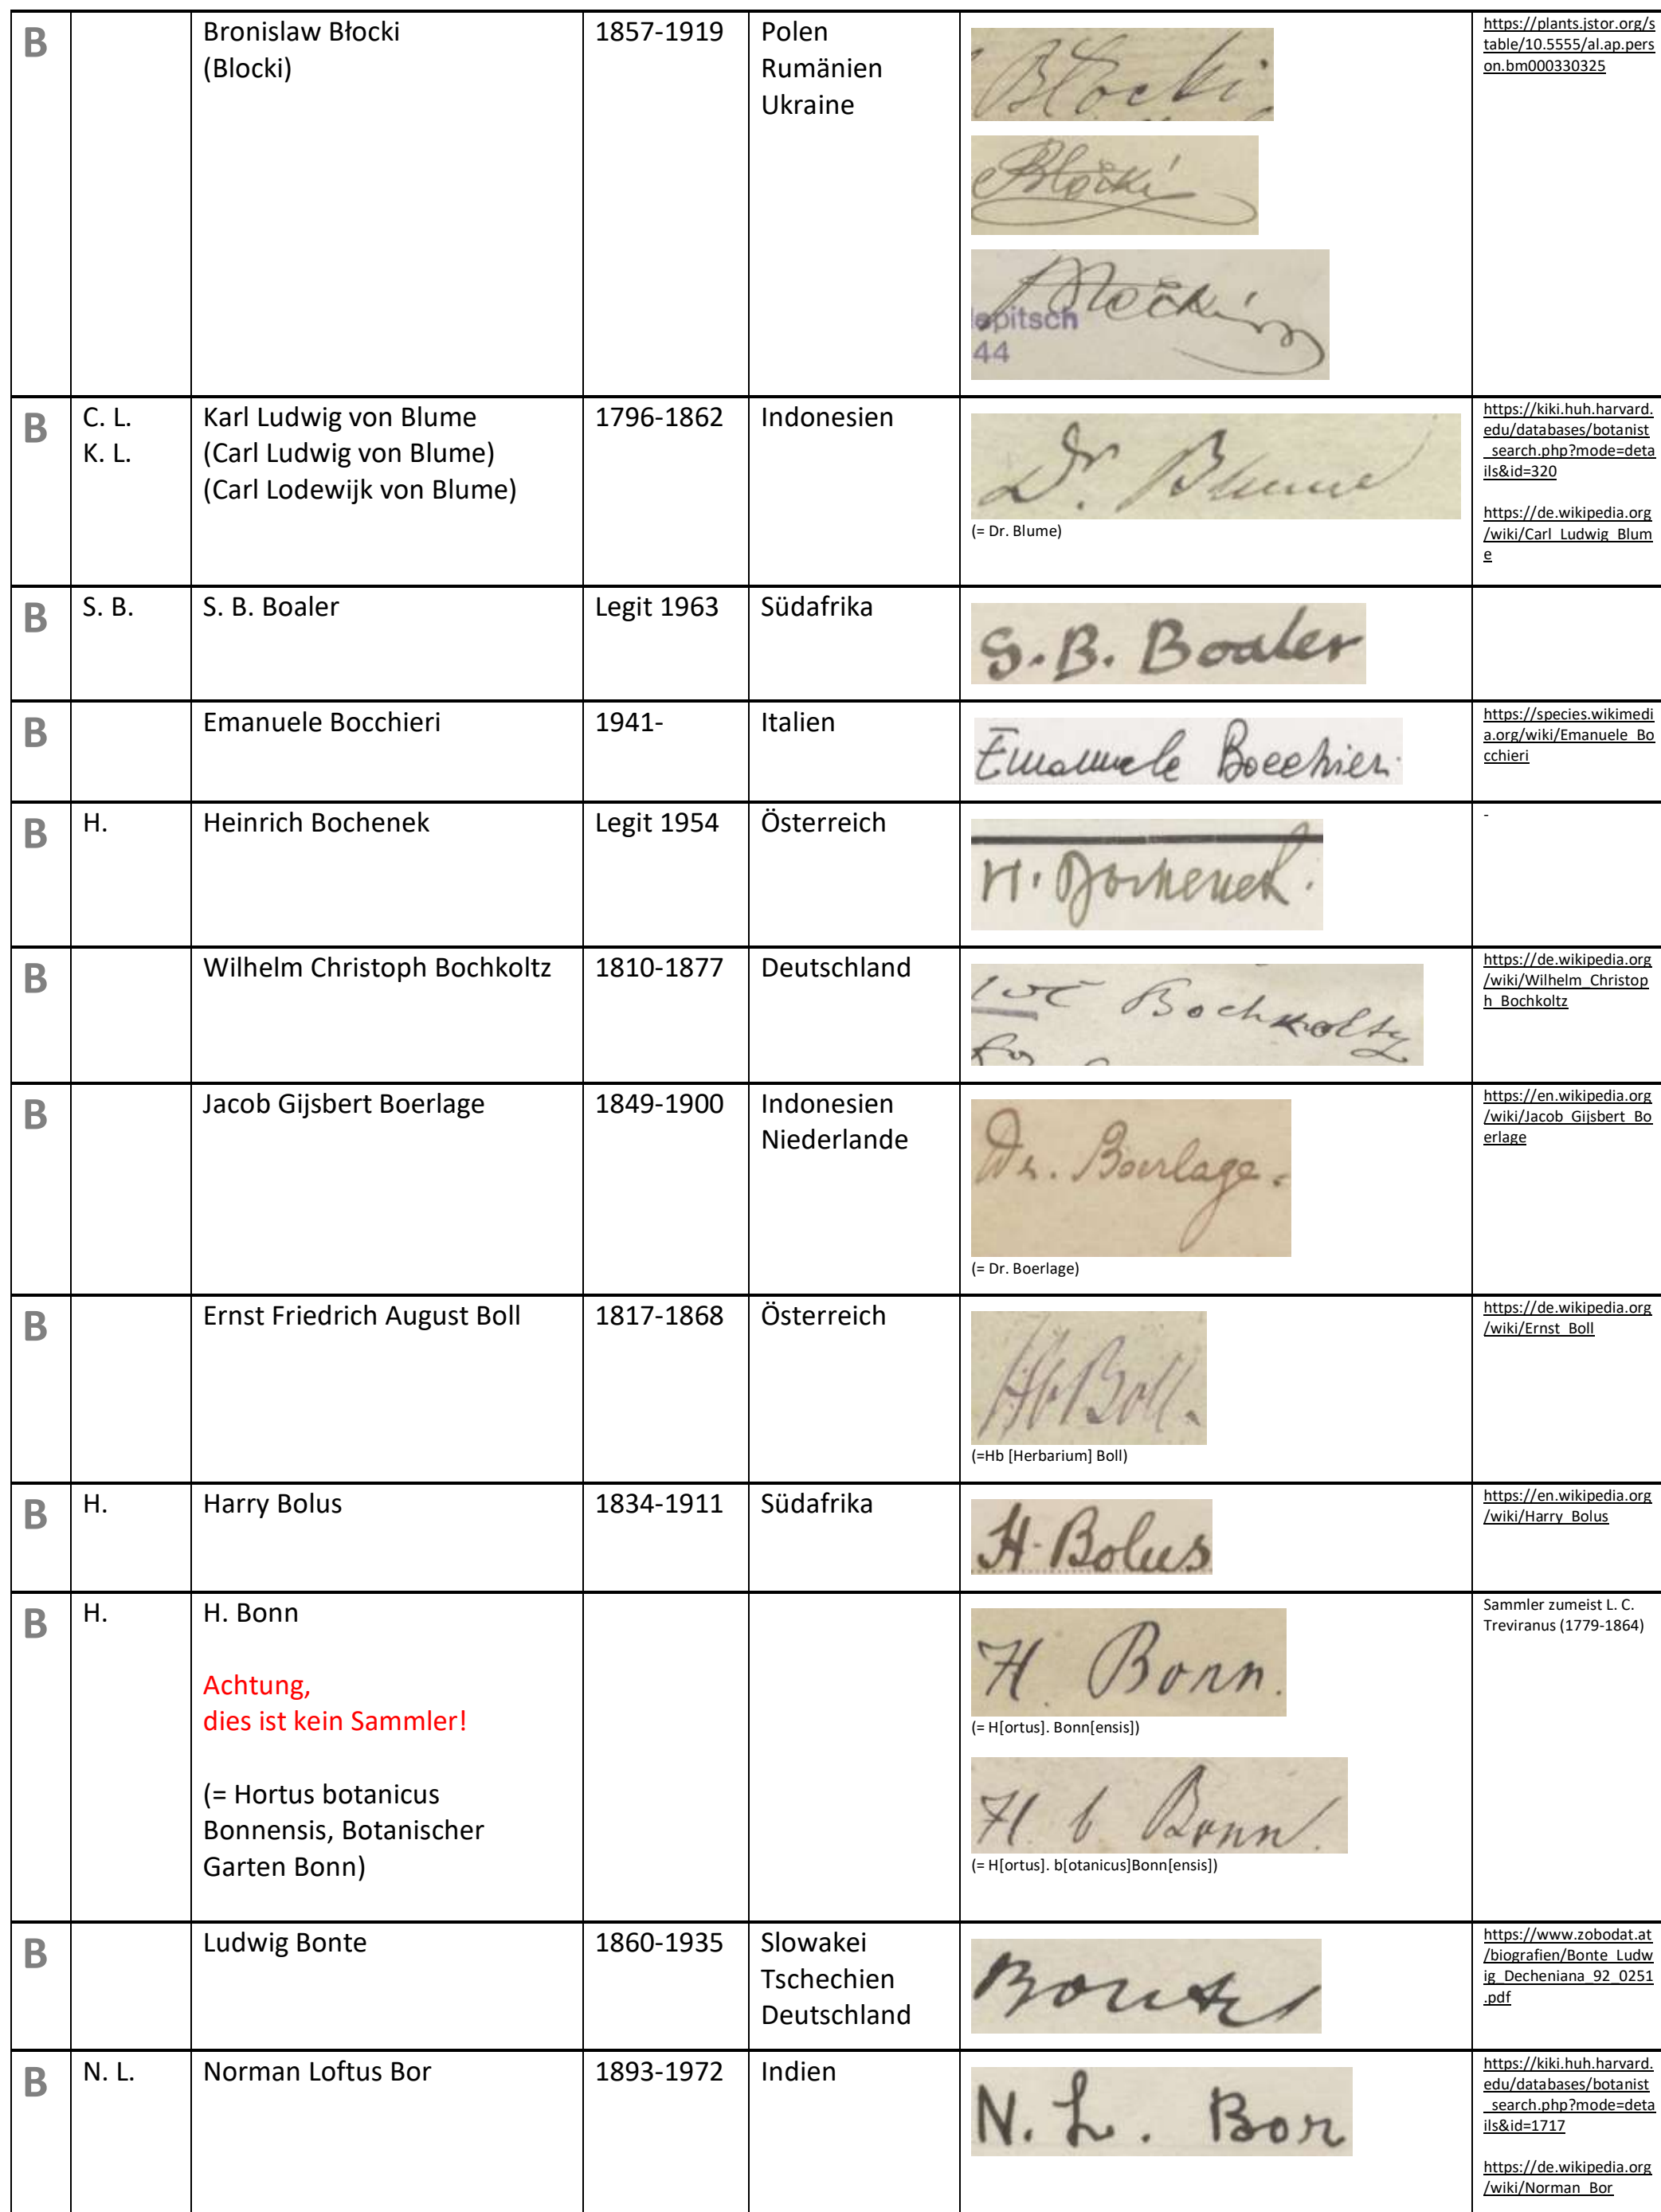 B
Bronislaw Błocki
(Blocki)
1857-1919
Polen
Rumänien
Ukraine
Błocki
Błocki
Błocki
epitsch
44
https://plants.jstor.org/s
table/10.5555/al.ap.pers
on.bm000330325
B
C. L.
K. L.
Karl Ludwig von Blume
(Carl Ludwig von Blume)
(Carl Lodewijk von Blume)
1796-1862
Indonesien
Dr. Blume
(= Dr. Blume)
https://kiki.huh.harvard.
edu/databases/botanist
_search.php?mode=deta
ils&id=320
https://de.wikipedia.org
/wiki/Carl_Ludwig_Blum
e
B
S. B.
S. B. Boaler
Legit 1963
Südafrika
S. B. Boaler
B
Emanuele Bocchieri
1941-
Italien
Emanuele Bocchieri
https://species.wikimedi
a.org/wiki/Emanuele_Bo
cchieri
B
H.
Heinrich Bochenek
Legit 1954
Österreich
H. Bochenek.
-
B
Wilhelm Christoph Bochkoltz
1810-1877
Deutschland
Bochkoltz
https://de.wikipedia.org
/wiki/Wilhelm_Christop
h_Bochkoltz
B
Jacob Gijsbert Boerlage
1849-1900
Indonesien
Niederlande
Dr. Boerlage.
(= Dr. Boerlage)
https://en.wikipedia.org
/wiki/Jacob_Gijsbert_Bo
erlage
B
Ernst Friedrich August Boll
1817-1868
Österreich
Hb Boll.
(=Hb [Herbarium] Boll)
https://de.wikipedia.org
/wiki/Ernst_Boll
B
H.
Harry Bolus
1834-1911
Südafrika
H. Bolus
https://en.wikipedia.org
/wiki/Harry_Bolus
B
H.
H. Bonn
Achtung,
dies ist kein Sammler!
(= Hortus botanicus
Bonnensis, Botanischer
Garten Bonn)
H. Bonn.
(= H[ortus]. Bonn[ensis])
H. b. Bonn.
(= H[ortus]. b[otanicus]Bonn[ensis])
Sammler zumeist L. C.
Treviranus (1779-1864)
B
Ludwig Bonte
1860-1935
Slowakei
Tschechien
Deutschland
Bonte
https://www.zobodat.at
/biografien/Bonte_Ludw
ig_Decheniana_92_0251
.pdf
B
N. L.
Norman Loftus Bor
1893-1972
Indien
N. L. Bor
https://kiki.huh.harvard.
edu/databases/botanist
_search.php?mode=deta
ils&id=1717
https://de.wikipedia.org
/wiki/Norman_Bor